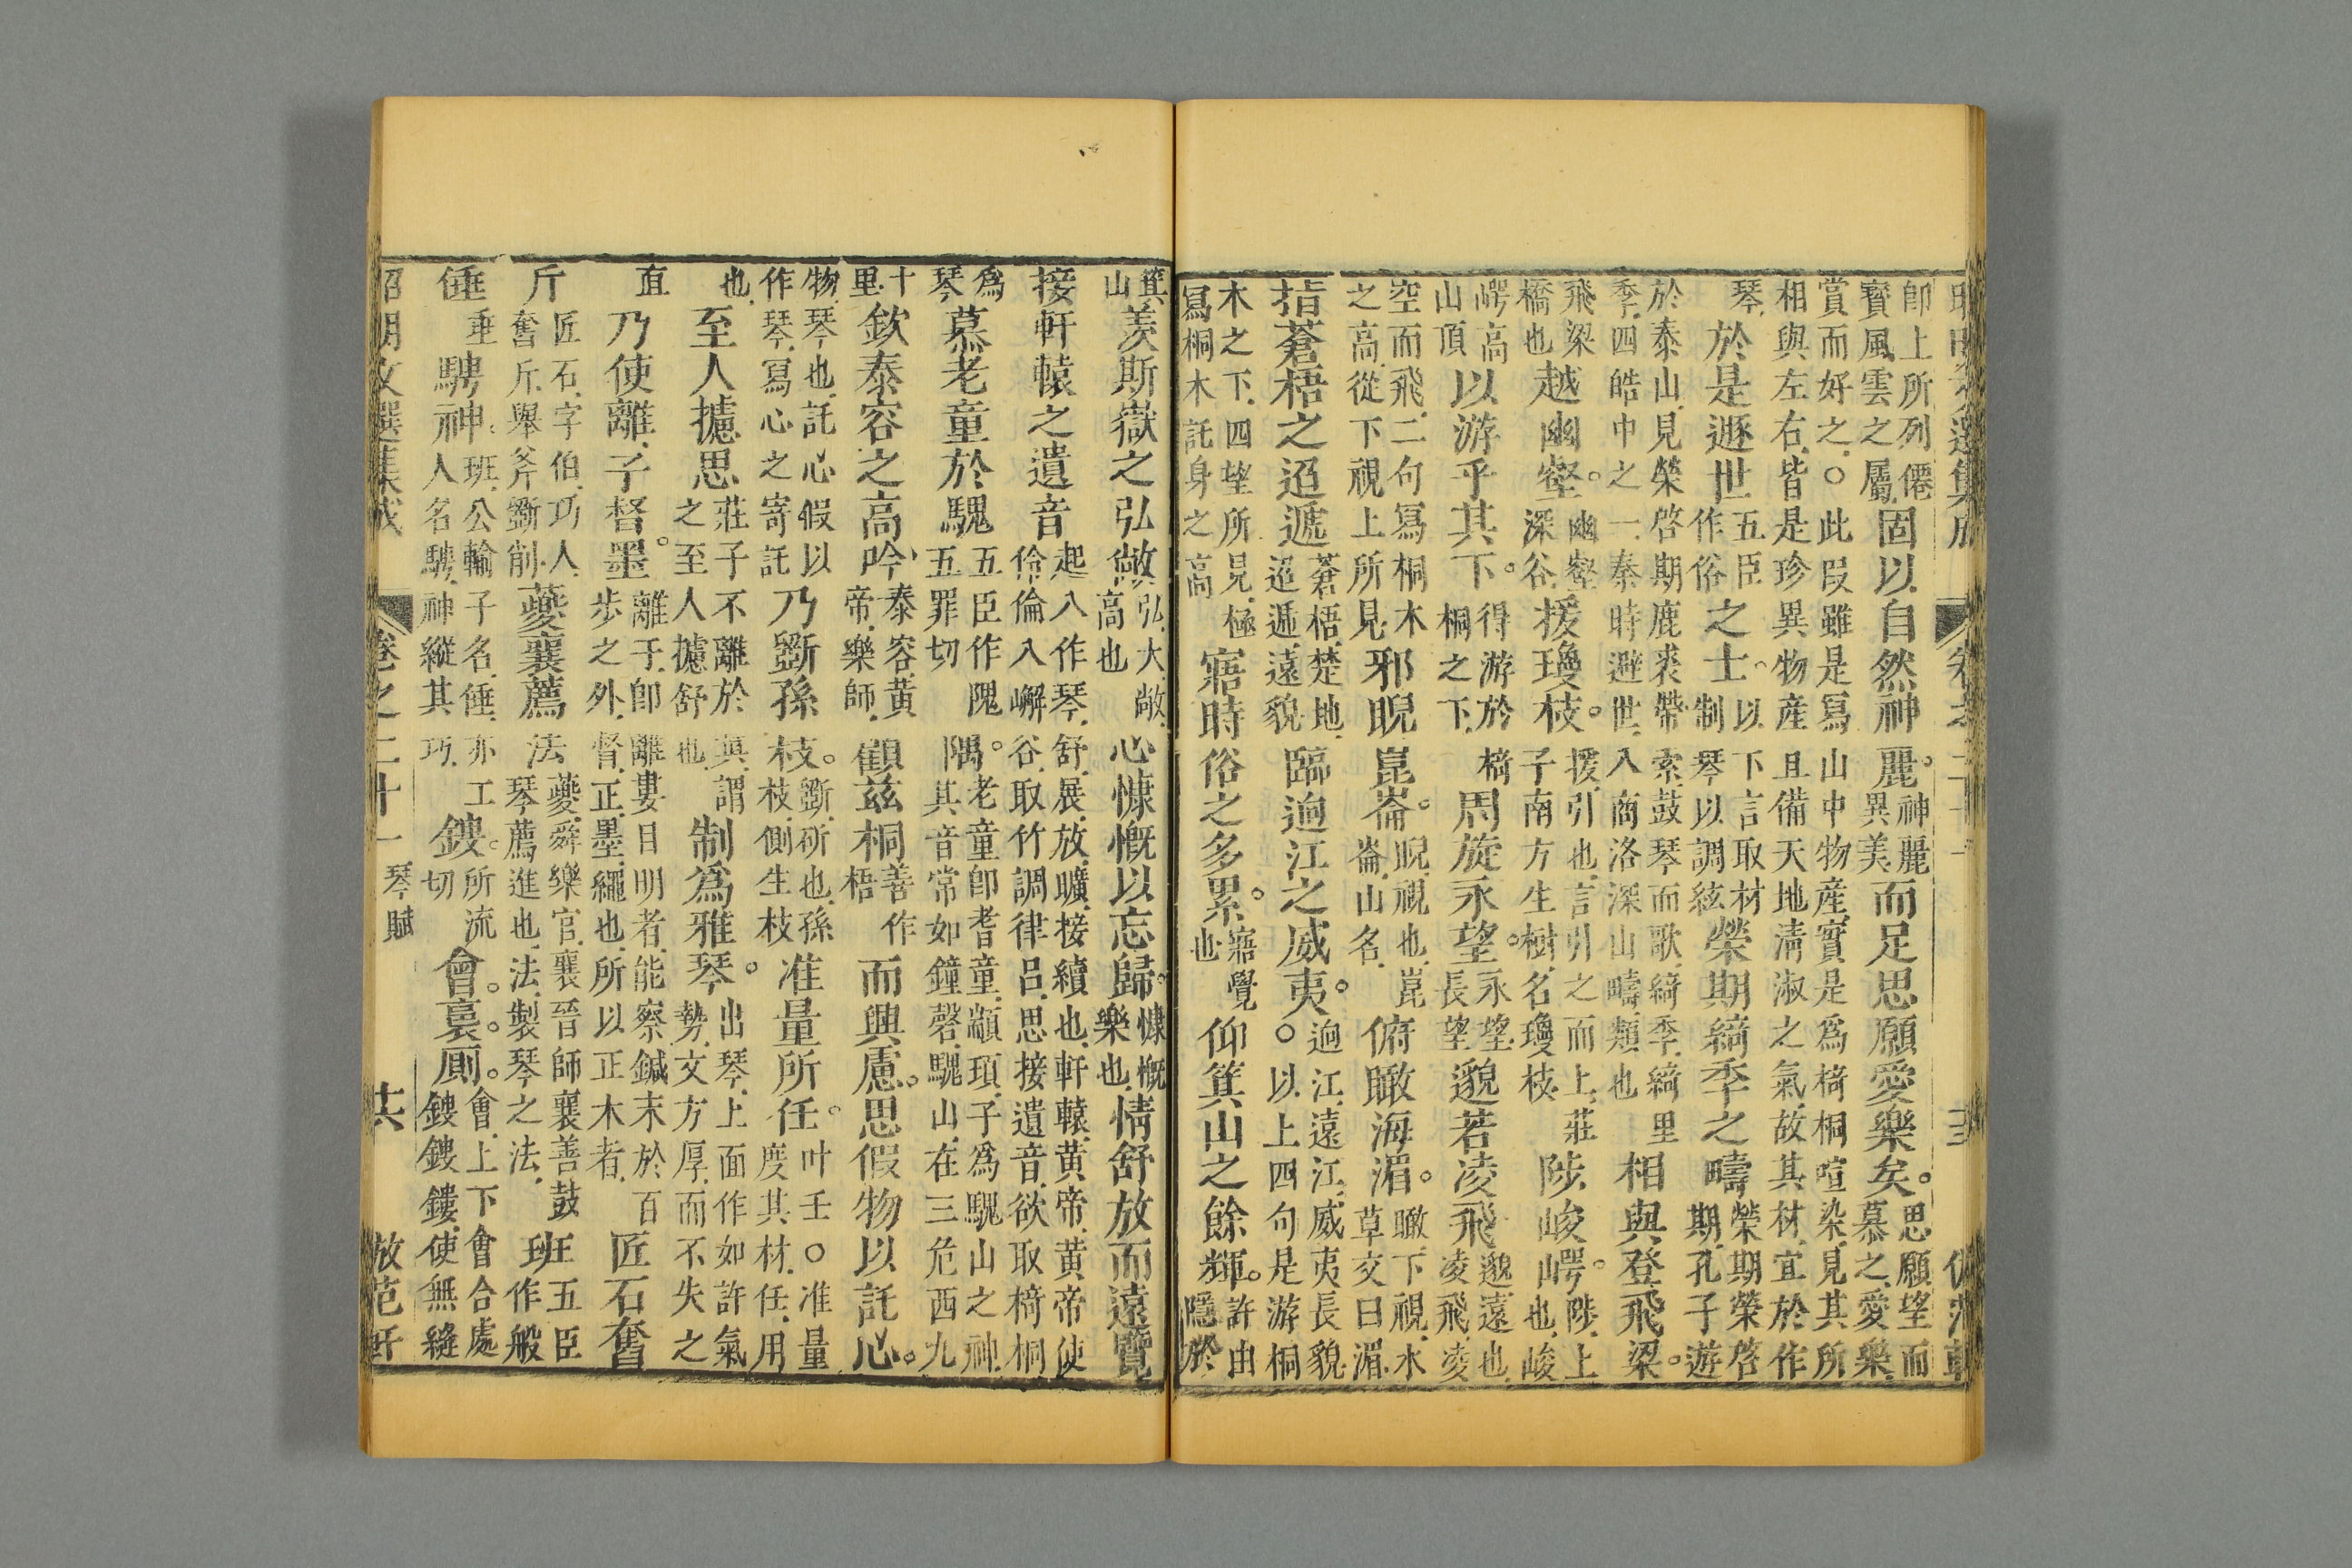 即上所列僊寶風雲之屬固以自然神麗。神麗異美而足思願愛樂矣。思願望而慕之愛樂
賞而好之○此叚雖是寫山中物產實是為椅桐喧染見其所相與左右皆是珍異物產且備天地淸淑之氣故其材宜於作
琴於是遯世五臣作俗之士以下言取材制琴以調絃榮期綺季之疇榮期榮啓期孔子遊
於泰山見榮啓期鹿裘帶索鼓琴而歌綺季綺里季四皓中之一秦時避世入商洛深山疇類也相與登飛梁。
飛梁橋也越幽壑。幽壑深谷援瓊枝。援引也言引之而上莊子南方生樹名瓊枝陟峻崿。陟上也峻
崿高山頂以游乎其下。得游於椅桐之下周旋永望。永望長望邈若凌飛邈遠也凌飛凌
空而飛二句寫桐木之高從下視上所見邪睨崑崙。睨視也崑崙山名俯瞰海湄。瞰下視水草交曰湄
指蒼梧之迢遞蒼梧楚地迢遞遠貌臨迴江之威夷。○迴江遠江威夷長貌以上四句是游桐
木之下四望所見極寫桐木託身之高寤時俗之多累。寤覺也仰箕山之餘輝。許由隱於
箕山羨斯嶽之弘敞弘大敞高也心慷慨以忘歸。慷慨樂也情舒放而遠覽
接軒轅之遺音起入作琴舒展放曠接續也軒轅黃帝黃帝使伶倫入嶰谷取竹調律呂思接遺音欲取椅桐
為琴慕老童於騩五臣作隗五罪切隅。老童即耆童顓頊子為騩山之神其音常如鐘磬騩山在三危西九
十里欽泰容之高吟泰容黃帝樂師顧茲桐善作梧而興慮。思假物以託心。
物琴也託心假以作琴寫心之寄託乃斵孫枝。斵斫也孫枝側生枝准量所任。叶壬○准量度其材任用
也至人攄思莊子不離於真謂之至人攄舒也制為雅琴。出琴上面作如許氣勢文方厚而不失之
直乃使離子督墨。離子即離婁目明者能察鍼末於百步之外督正墨繩也所以正木者匠石奮
斤匠石字伯巧人奮斤舉斧斵削夔襄薦法夔舜樂官襄晉師襄善鼓琴薦進也法製琴之法班五臣作般
倕垂騁神。班公輸子名倕亦工人名騁神縱其巧鎪。所流切會。裛。厠。會上下會合處鎪鎪鏤使無縫
昭明文選集成 卷之二十一 琴賦